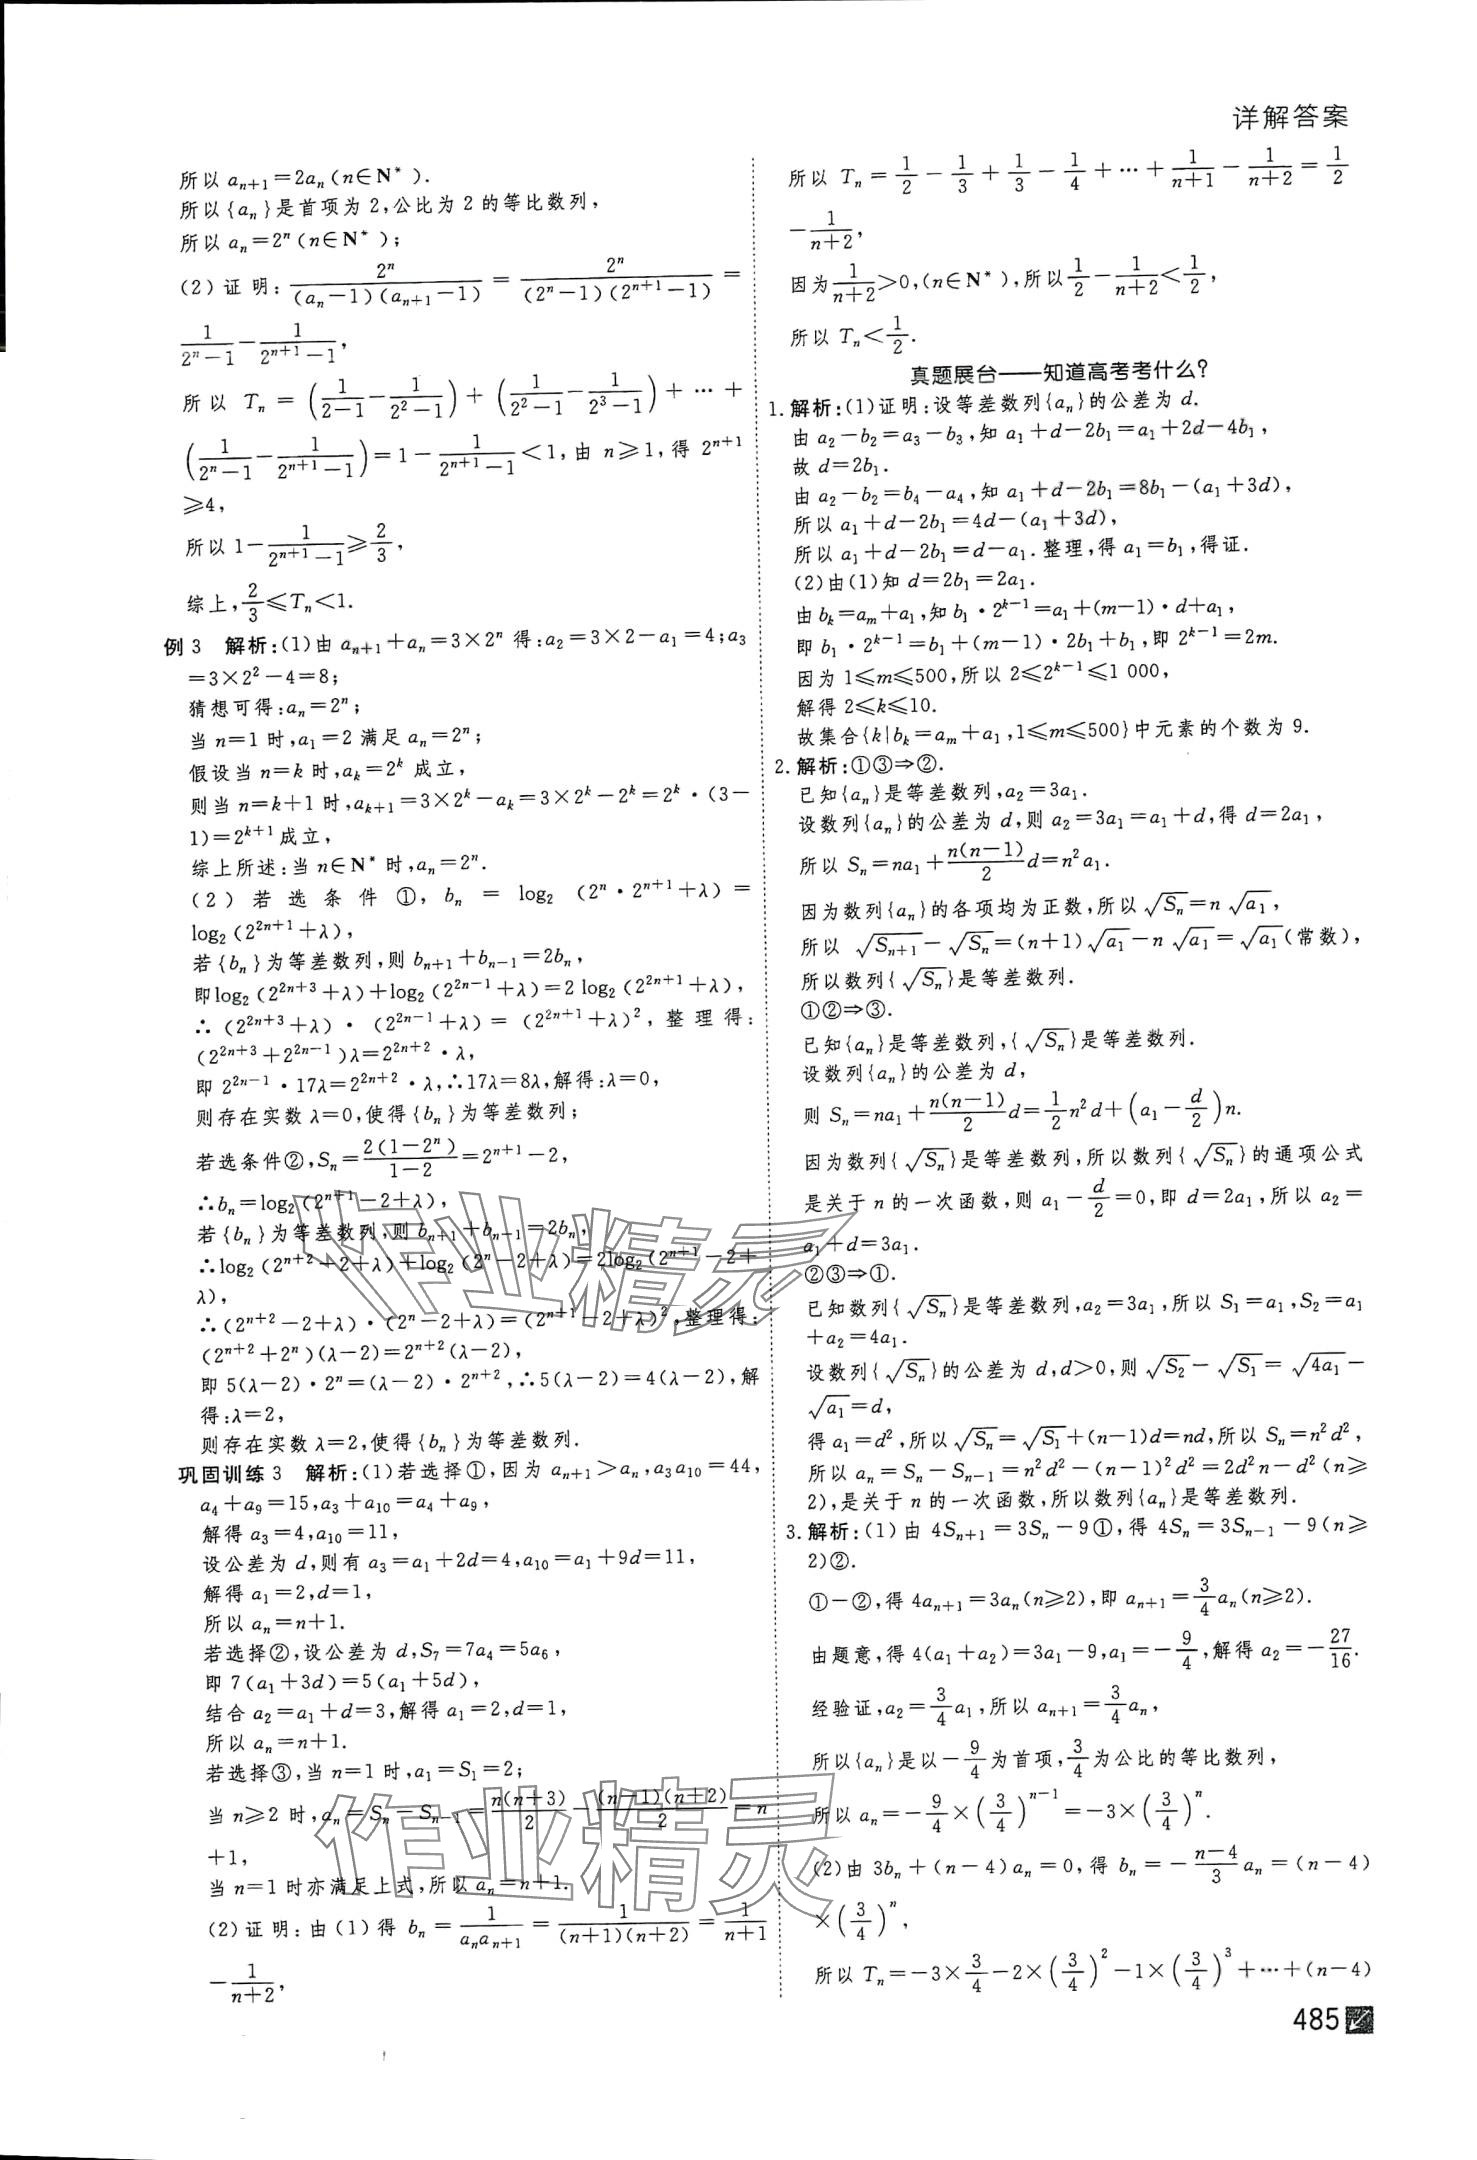 详解答案
所以 aₙ₊₁=2aₙ(n∈N*).
所以{aₙ}是首项为 2,公比为 2 的等比数列,
所以 aₙ=2ⁿ(n∈N*);
(2)证明:2ⁿ/((aₙ-1)(aₙ₊₁-1))=2ⁿ/((2ⁿ-1)(2ⁿ⁺¹-1))=
1/(2ⁿ-1)-1/(2ⁿ⁺¹-1),
所以 Tₙ=(1/(2-1)-1/(2²-1))+(1/(2²-1)-1/(2³-1))+…+
(1/(2ⁿ-1)-1/(2ⁿ⁺¹-1))=1-1/(2ⁿ⁺¹-1)<1,由 n≥1,得 2ⁿ⁺¹
≥4,
所以 1-1/(2ⁿ⁺¹-1)≥2/3,
综上,2/3≤Tₙ<1.
例 3 解析:(1)由 aₙ₊₁+aₙ=3×2ⁿ 得:a₂=3×2-a₁=4;a₃
=3×2²-4=8;
猜想可得:aₙ=2ⁿ;
当 n=1 时,a₁=2 满足 aₙ=2ⁿ;
假设当 n=k 时,aₖ=2ᵏ 成立,
则当 n=k+1 时,aₖ₊₁=3×2ᵏ-aₖ=3×2ᵏ-2ᵏ=2ᵏ·(3-
1)=2ᵏ⁺¹成立,
综上所述:当 n∈N* 时,aₙ=2ⁿ.
(2)若选条件①,bₙ=log₂(2ⁿ·2ⁿ⁺¹+λ)=
log₂(2²ⁿ⁺¹+λ),
若{bₙ}为等差数列,则 bₙ₊₁+bₙ₋₁=2bₙ,
即log₂(2²ⁿ⁺³+λ)+log₂(2²ⁿ⁻¹+λ)=2 log₂(2²ⁿ⁺¹+λ),
∴(2²ⁿ⁺³+λ)·(2²ⁿ⁻¹+λ)=(2²ⁿ⁺¹+λ)²,整理得:
(2²ⁿ⁺³+2²ⁿ⁻¹)λ=2²ⁿ⁺²·λ,
即 2²ⁿ⁻¹·17λ=2²ⁿ⁺²·λ,∴17λ=8λ,解得:λ=0,
则存在实数 λ=0,使得{bₙ}为等差数列;
若选条件②,Sₙ=2(1-2ⁿ)/(1-2)=2ⁿ⁺¹-2,
∴bₙ=log₂(2ⁿ⁺¹-2+λ),
若{bₙ}为等差数列,则 bₙ₊₁+bₙ₋₁=2bₙ,
∴log₂(2ⁿ⁺²-2+λ)+log₂(2ⁿ-2+λ)=2log₂(2ⁿ⁺¹-2+
λ),
∴(2ⁿ⁺²-2+λ)·(2ⁿ-2+λ)=(2ⁿ⁺¹-2+λ)²,整理得:
(2ⁿ⁺²+2ⁿ)(λ-2)=2ⁿ⁺²(λ-2),
即 5(λ-2)·2ⁿ=(λ-2)·2ⁿ⁺²,∴5(λ-2)=4(λ-2),解
得:λ=2,
则存在实数 λ=2,使得{bₙ}为等差数列.
巩固训练 3 解析:(1)若选择①,因为 aₙ₊₁>aₙ,a₃a₁₀=44,
a₄+a₉=15,a₃+a₁₀=a₄+a₉,
解得 a₃=4,a₁₀=11,
设公差为 d,则有 a₃=a₁+2d=4,a₁₀=a₁+9d=11,
解得 a₁=2,d=1,
所以 aₙ=n+1.
若选择②,设公差为 d,S₇=7a₄=5a₆,
即 7(a₁+3d)=5(a₁+5d),
结合 a₂=a₁+d=3,解得 a₁=2,d=1,
所以 aₙ=n+1.
若选择③,当 n=1 时,a₁=S₁=2;
当 n≥2 时,aₙ=Sₙ-Sₙ₋₁=n(n+3)/2-(n-1)(n+2)/2=n
+1,
当 n=1 时亦满足上式,所以 aₙ=n+1.
(2)证明:由(1)得 bₙ=1/(aₙaₙ₊₁)=1/((n+1)(n+2))=1/(n+1)
-1/(n+2),
所以 Tₙ=1/2-1/3+1/3-1/4+…+1/(n+1)-1/(n+2)=1/2
-1/(n+2),
因为1/(n+2)>0,(n∈N*),所以1/2-1/(n+2)<1/2,
所以 Tₙ<1/2.
真题展台——知道高考考什么?
1.解析:(1)证明:设等差数列{aₙ}的公差为 d.
由 a₂-b₂=a₃-b₃,知 a₁+d-2b₁=a₁+2d-4b₁,
故 d=2b₁.
由 a₂-b₂=b₄-a₄,知 a₁+d-2b₁=8b₁-(a₁+3d),
所以 a₁+d-2b₁=4d-(a₁+3d),
所以 a₁+d-2b₁=d-a₁.整理,得 a₁=b₁,得证.
(2)由(1)知 d=2b₁=2a₁.
由 bₖ=aₘ+a₁,知 b₁·2ᵏ⁻¹=a₁+(m-1)·d+a₁,
即 b₁·2ᵏ⁻¹=b₁+(m-1)·2b₁+b₁,即 2ᵏ⁻¹=2m.
因为 1≤m≤500,所以 2≤2ᵏ⁻¹≤1 000,
解得 2≤k≤10.
故集合{k|bₖ=aₘ+a₁,1≤m≤500}中元素的个数为 9.
2.解析:①③⇒②.
已知{aₙ}是等差数列,a₂=3a₁.
设数列{aₙ}的公差为 d,则 a₂=3a₁=a₁+d,得 d=2a₁,
所以 Sₙ=na₁+n(n-1)/2 d=n²a₁.
因为数列{aₙ}的各项均为正数,所以 √Sₙ=n√a₁,
所以 √Sₙ₊₁-√Sₙ=(n+1)√a₁-n√a₁=√a₁(常数),
所以数列{√Sₙ}是等差数列.
①②⇒③.
已知{aₙ}是等差数列,{√Sₙ}是等差数列.
设数列{aₙ}的公差为 d,
则 Sₙ=na₁+n(n-1)/2 d=1/2 n²d+(a₁-d/2)n.
因为数列{√Sₙ}是等差数列,所以数列{√Sₙ}的通项公式
是关于 n 的一次函数,则 a₁-d/2=0,即 d=2a₁,所以 a₂=
a₁+d=3a₁.
②③⇒①.
已知数列{√Sₙ}是等差数列,a₂=3a₁,所以 S₁=a₁,S₂=a₁
+a₂=4a₁.
设数列{√Sₙ}的公差为 d,d>0,则 √S₂-√S₁=√(4a₁)-
√a₁=d,
得 a₁=d²,所以 √Sₙ=√S₁+(n-1)d=nd,所以 Sₙ=n²d²,
所以 aₙ=Sₙ-Sₙ₋₁=n²d²-(n-1)²d²=2d²n-d²(n≥
2),是关于 n 的一次函数,所以数列{aₙ}是等差数列.
3.解析:(1)由 4Sₙ₊₁=3Sₙ-9①,得 4Sₙ=3Sₙ₋₁-9(n≥
2)②.
①-②,得 4aₙ₊₁=3aₙ(n≥2),即 aₙ₊₁=3/4 aₙ(n≥2).
由题意,得 4(a₁+a₂)=3a₁-9,a₁=-9/4,解得 a₂=-27/16.
经验证,a₂=3/4 a₁,所以 aₙ₊₁=3/4 aₙ,
所以{aₙ}是以-9/4为首项,3/4为公比的等比数列,
所以 aₙ=-9/4×(3/4)ⁿ⁻¹=-3×(3/4)ⁿ.
(2)由 3bₙ+(n-4)aₙ=0,得 bₙ=-(n-4)/3 aₙ=(n-4)
×(3/4)ⁿ,
所以 Tₙ=-3×3/4-2×(3/4)²-1×(3/4)³+…+(n-4)
485
作业精灵
作业精灵